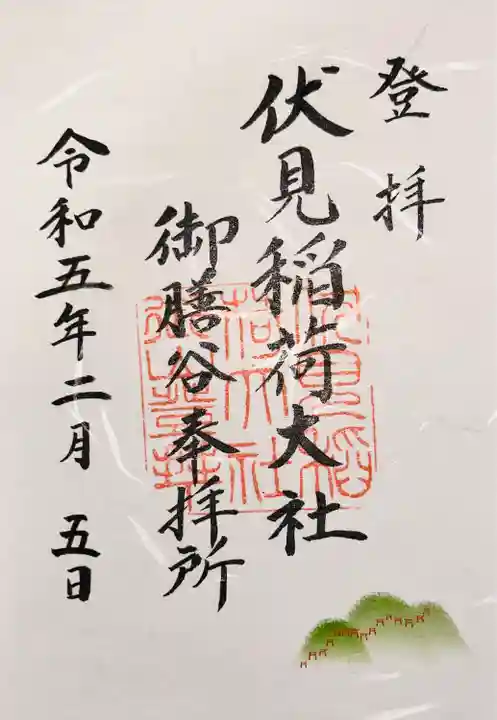 登拝
伏見稲荷大社
御膳谷奉拝所
令和五年二月 五日